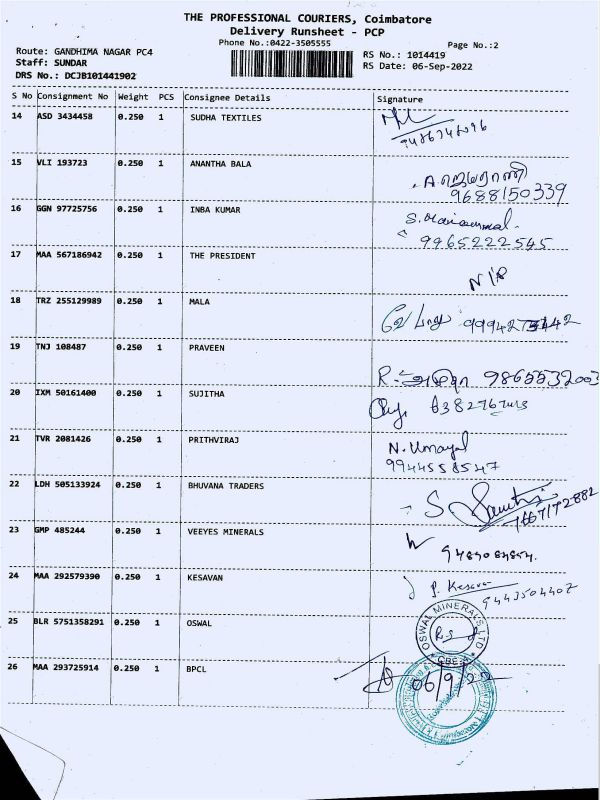 THE PROFESSIONAL COURIERS, Coimbatore
Delivery Runsheet - PCP
Phone No.:0422-3505555
Page No.:2
Route: GANDHIMA NAGAR PC4
RS No.: 1014419
Staff: SUNDAR
RS Date: 06-Sep-2022
DRS No.: DCJB101441902
S No Consignment No Weight PCS Consignee Details Signature
14 ASD 3434458 0.250 1 SUDHA TEXTILES
15 VLI 193723 0.250 1 ANANTHA BALA
9688150339
16 GGN 97725756 0.250 1 INBA KUMAR
9965222545
17 MAA 567186942 0.250 1 THE PRESIDENT
18 TRZ 255129989 0.250 1 MALA
19 TNJ 108487 0.250 1 PRAVEEN
9865532003
20 IXM 50161400 0.250 1 SUJITHA
21 TVR 2081426 0.250 1 PRITHVIRAJ N. Umayal
9944558547
22 LDH 505133924 0.250 1 BHUVANA TRADERS
23 GMP 485244 0.250 1 VEEYES MINERALS
24 MAA 292579390 0.250 1 KESAVAN P. Kesavan
9443504407
25 BLR 5751358291 0.250 1 OSWAL
OSWAL MINERALS LTD
CBE
26 MAA 293725914 0.250 1 BPCL 06/9/22